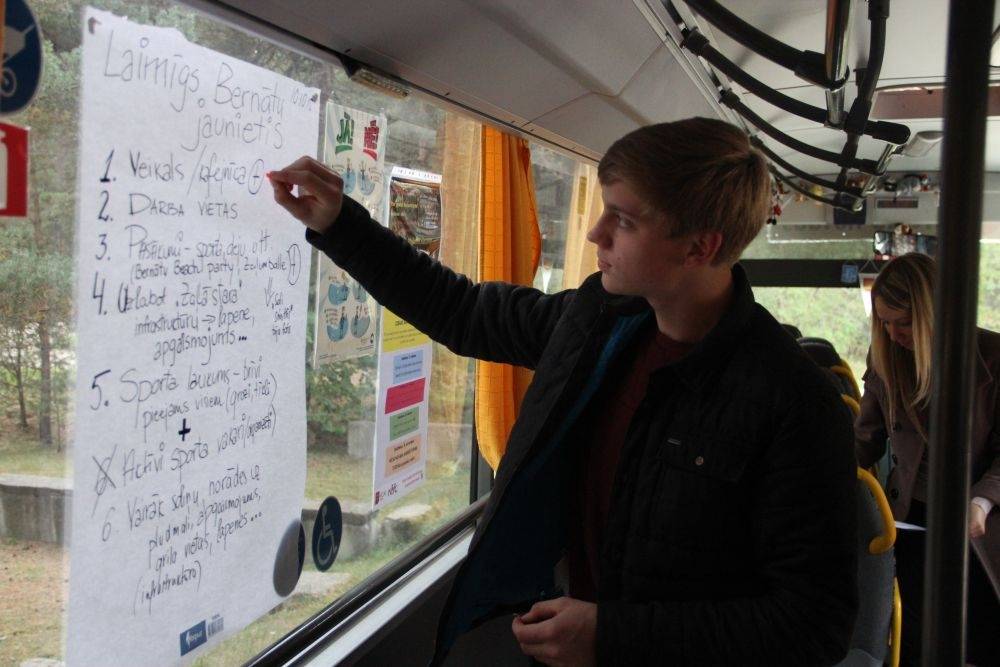 Laimīgs Bernātu
10.10.
jaunietis
1. Veikals / kafejnīca +
2. DARBA VIETAS
3. Pasākumi - sporta, deju, utt.
(Bernātu Beach party, zaļumballe) +
4. Uzlabot "Zaļā stara"
infrastruktūru → lapene,
apgaismojums ...
5. Sporta laukums - brīvi
pieejams visiem (grozi, tīkls)
+
Aktīvi sporta vakari
6 Vairāk soliņu, norādes uz
pludmali, apgaismojums,
grila vietas, lapenes ...
(infrastruktūra)
JĀ! NĒ!